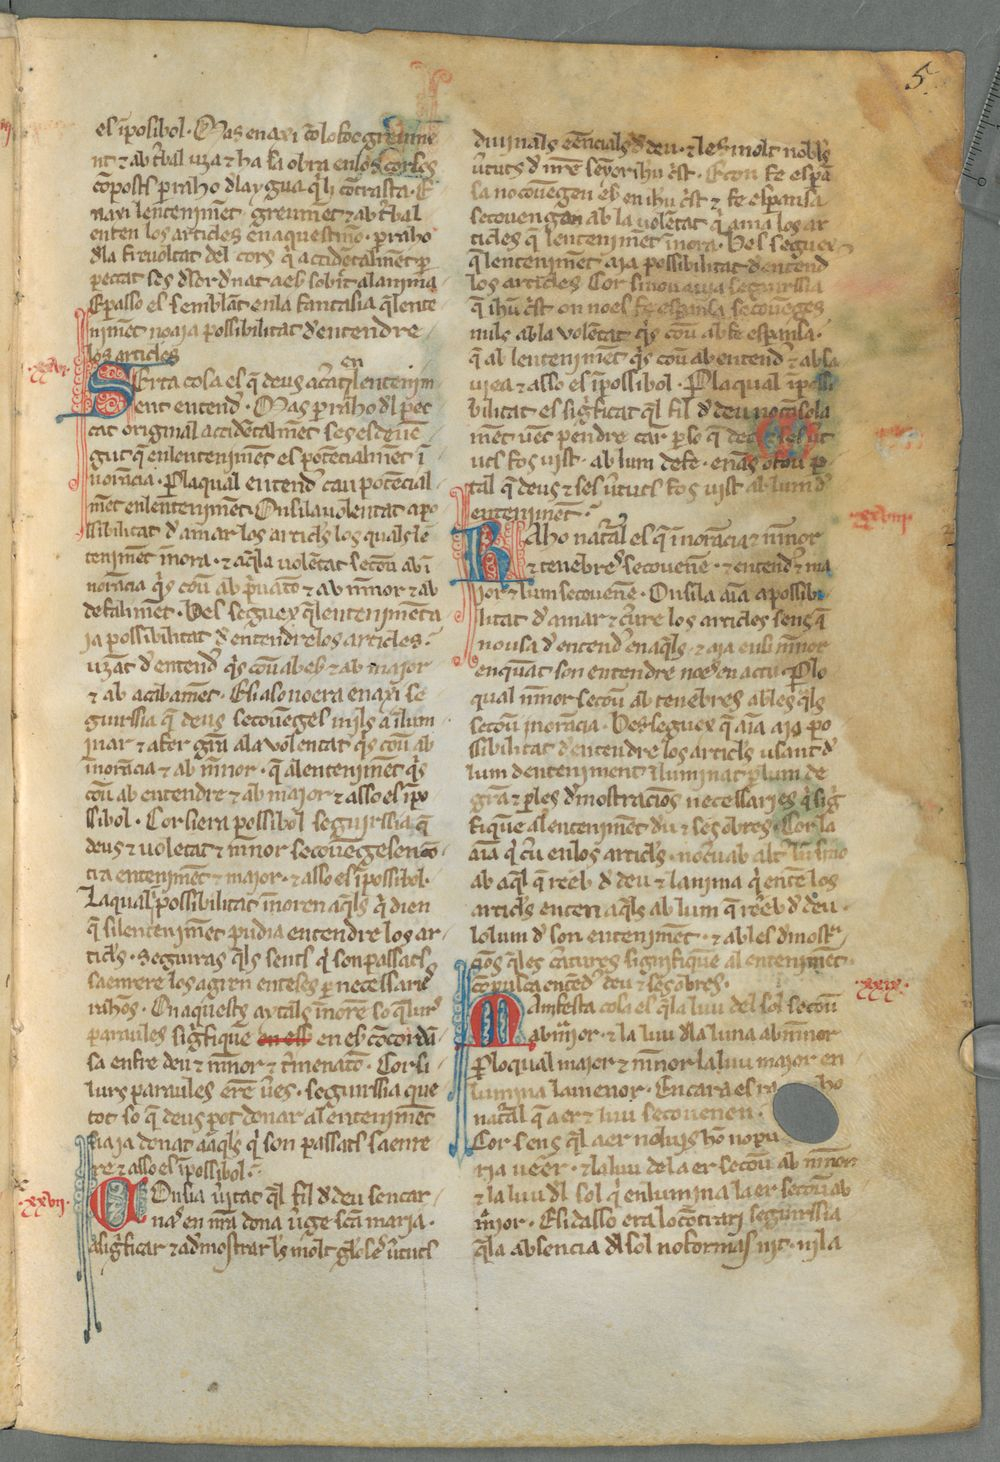 5
el īposibol · Mas en axi cō lo foc greumē
nt ⁊ ab trbal vza ⁊ ha sa obra en los corses
cōposts ꝑ raho dlaygua q̄ li cōtrasta · E
naxi lentenimēt greumēt ⁊ ab trbal
enten los articles en aquest mō · ꝑ raho
dla fexvoltat del cors q̄ accidētalmēt ꝑ
peccat ses dsordnat a eb sobrīt a lanima
Espasso el semblāt en la fantasia q̄ lente
nimēt no aia possibilitat dentendre
los articles
·xxvi·
SErta cosa es q̄ deus a creat lentenim
en
ent entendr̄ · Mas ꝑ raho dl pec
cat original accidētalmēt ses esdeuē
gut q̄ en lentenimēt es potēcialmēt ī
norācia · ꝑ la qual entendr̄ cau potēcial
mēt en lentenimēt · On si la volentat a po
ssibilitat damar los articls los quals lē
tenimēt īnora · ⁊ aq̄la volētat se cōu ab ī
norācia q̄s cōu ab pͥuatō ⁊ ab mīnor ⁊ ab
defalimēt · Des segueix q̄ lentenimēt a
ia possibilitat dentendre los articles ·
vzāt dentendr̄ q̄s cōu ab eb ⁊ ab maior
⁊ ab acabamēt · E si aso no era en axi se
guirssia q̄ deus se couēges mils a ilum
inar ⁊ a fer grā a la volentat q̄s cōu ab
īnorācia ⁊ ab mīnor · q̄ a lentenimēt q̄s
cōu ab entendre ⁊ ab maior ⁊ asso es īpo
ssibol · Cor si era possibol seguirssia q̄
deus ⁊ voletat ⁊ mīnor se couēgesen cō
tra entenimēt ⁊ maior · ⁊ asso es īpossibol ·
La qual īpossibilitat īnoren aq̄ls q̄ dien
q̄ si lentenimēt pudia entendre los ar
ticls · seguiras q̄ls sents q̄ son passats
saenrere los agren enteses ꝑ necessaries
rahōs · On aquests aytals īnorē so q̄ lurs
paraules sigͥfiquē en ess en eb cōcordā
sa entre deu ⁊ mīnor ⁊ tͥmenatō · Cor si
lurs paraules erē ūes · seguirssia que
tot so q̄ deus pot donar a lentenimēt
lia ia donat a aq̄ls q̄ son passats saenre
re ⁊ asso es īpossibol ·
·xxvii·
COnsia ūitat q̄l fil d deu sencar
nas en nr̄a dona ūge scā maria ·
A sigͥficar ⁊ a dmostrar ls mōlt gloses ūtuts
diuinals esēcials d deu · ⁊ les molt nobls
ūtuts d nr̄e seyor ihū xst · E con fe espā
sa no couēgen eb en ihū xst ⁊ fe esperansa
se couengan ab la volētat q̄ ama los ar
ticles q̄ lentenimēt īnora · Des segueix
q̄ lentenimēt aia possibilitat dentendr̄
los articles Cor si no auia seguirssia
q̄ ihū xst on no es fe espansa se couēges
mils ab la volētat q̄s cōu ab fe espansa ·
q̄ ab lentenimēt q̄s cōu ab entendr̄ ⁊ ab sa
viea ⁊ asso es īpossibol · Per la qual īpossi
bilitat es sigͥficat q̄l fil d deu no tā sola
mēt uēc pendre carn ꝑ so q̄
uts fos vist · ab lum de fe ·
tal q̄ deus ⁊ ses ūtuts fos vist ab lum d
entenimēt ·
·xxviii·
RAho natͣal es q̄ īnorācia ⁊ mīnor
⁊ tenebres se couenē · ⁊ entendr̄ ⁊ ma
ior ⁊ lum se couenē · On si la aīa a possibi
litat damar ⁊ cͬure los articles sens q̄
no usa dentendr̄ en aq̄ls · ⁊ aia en si mīnor
en quāt son entendre no es en actu · Per lo
qual mīnor se cōu ab tenebres ab les q̄ls
se cōu īnorācia · Des segueix q̄ aīa aia po
ssibilitat dentendre los articls vsant d
lum dentenimēt iluminat ꝑ lum de
grā ⁊ ꝑ les dmostracions necessaries q̄ sigͥ
fiquen a lentenimēt du ⁊ ses obres · Cor la
aīa q̄ cͬu en los articls · no cͬu ab altͬ lum sino
ab aq̄l q̄ reeb d deu ⁊ lanima q̄ entē los
articls enten aq̄ls ab lum q̄ reeb d deu ·
lo lum d son entenimēt · ⁊ ab les dmostra
ciōs q̄ les cͬatures signifiquē al entenimēt ·
cō pusca entēdr̄ deu ⁊ ses obres ·
·xxix·
MAnifesta cosa es q̄ la luu del sol se cōu
ab maior · ⁊ la luu dla luna ab mīnor
Per lo qual maior ⁊ mīnor la luu maior en
lumina la menor · Encara es ra ho
natͣal q̄ aer ⁊ luu se couenen ·
Cor sens q̄l aer no luis hō no po
ria ueer · ⁊ la luu de la er se cōu ab mīnor
⁊ la luu dl sol q̄ enlumina la er se cōu ab
maior · E si dasso era lo cōtrari seguirssia
q̄ la absencia dl sol no formas nit · ni la